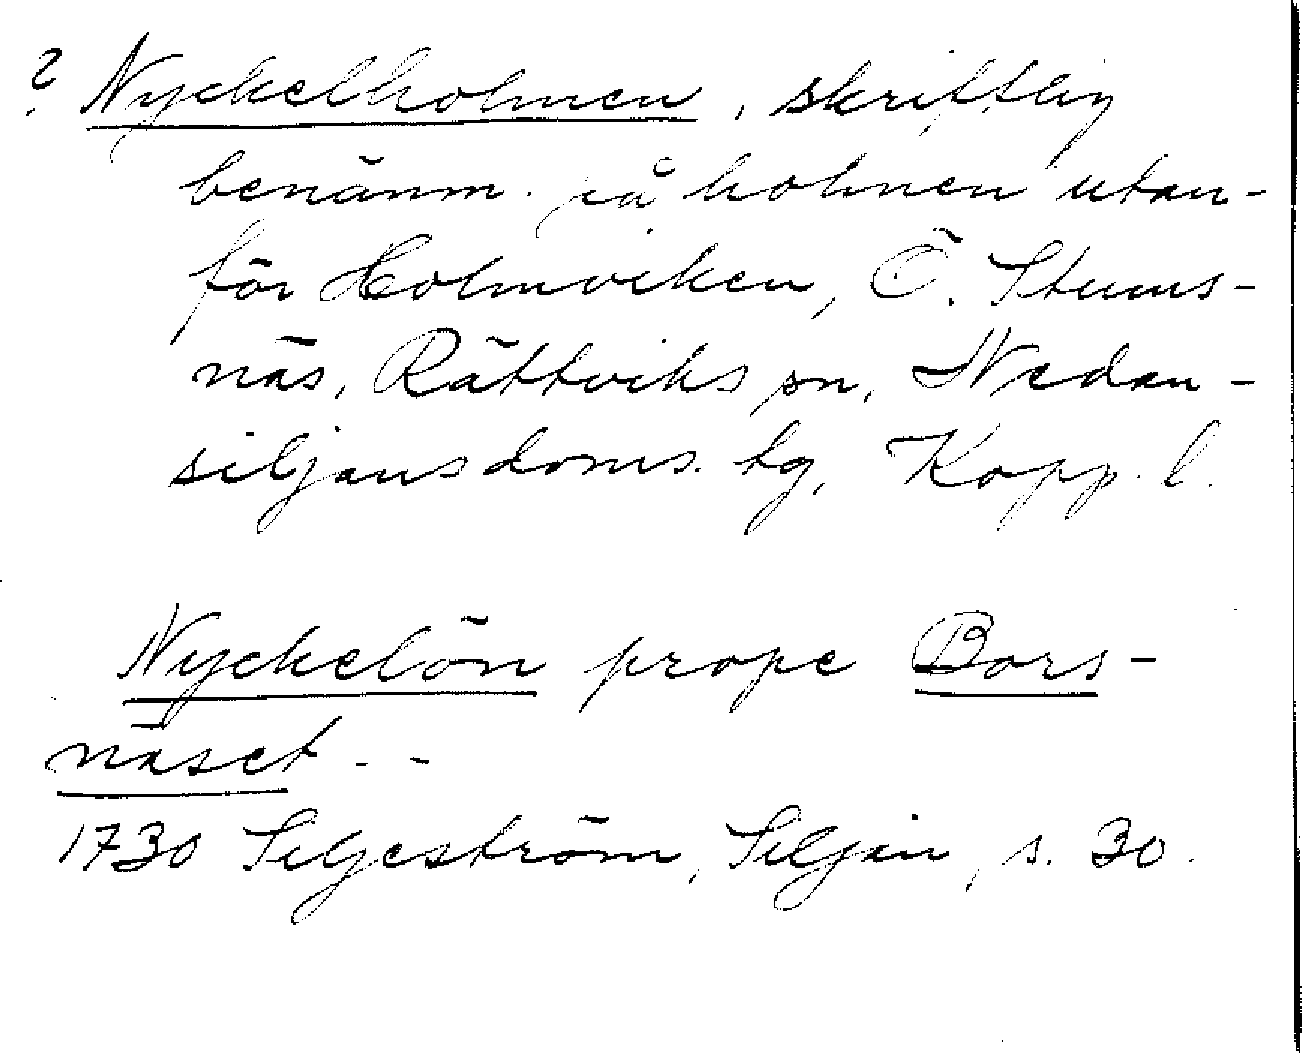 ? Nyckelholmen, skriftlig
benämn. på holmen utan-
för Holmviken, Ö. Stums-
näs, Rättviks sn, Nedan-
siljansdoms. tg, Kopp. l.
Nyckelön prope Bors-
näset - -
1730 Siljeström, Siljan, s. 30.